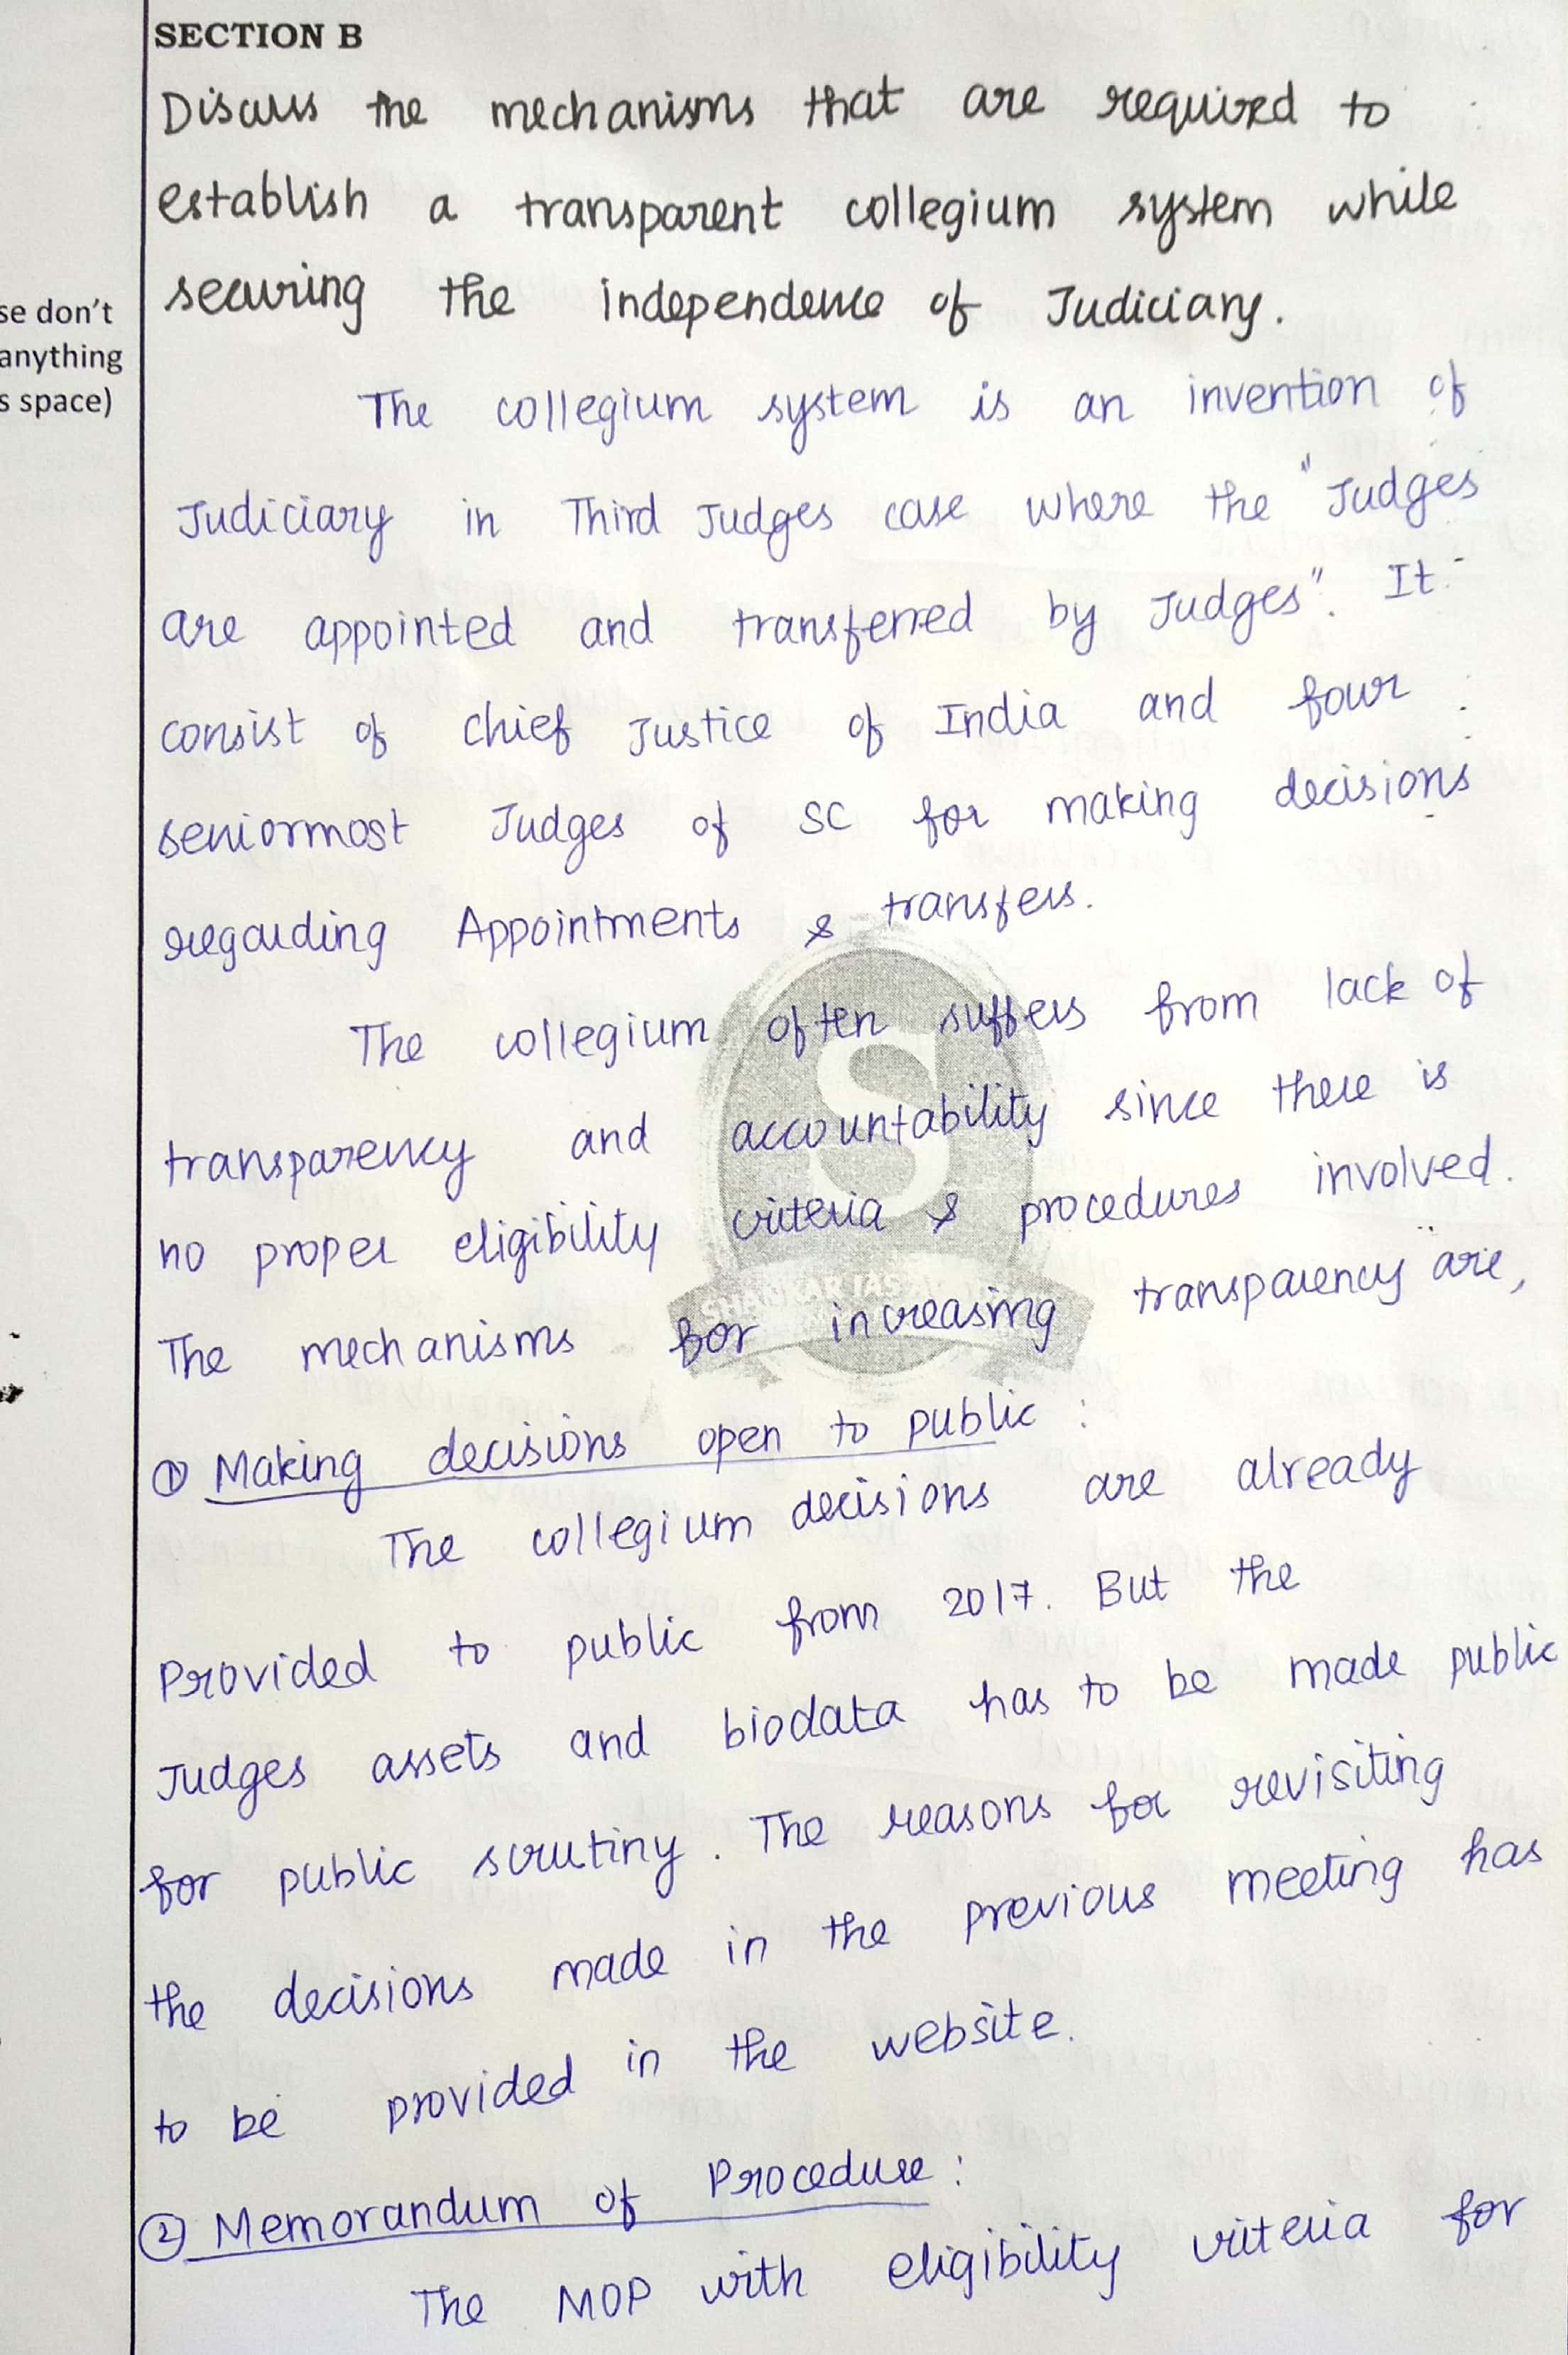 SECTION B
Discuss the mechanisms that are required to
establish a transparent collegium system while
securing the independence of Judiciary.
se don't
anything
s space)
The collegium system is an invention of
Judiciary in Third Judges case where the "Judges
are appointed and transferred by Judges". It
consist of chief Justice of India and four
seniormost Judges of SC for making decisions
regarding Appointments & transfers.
The collegium often suffers from lack of
transparency and accountability since there is
no proper eligibility criteria & procedures involved.
The mechanisms for increasing transparency are,
① Making decisions open to public :
The collegium decisions are already
Provided to public from 2017. But the
Judges assets and biodata has to be made public
for public scrutiny. The reasons for revisiting
the decisions made in the previous meeting has
to be provided in the website.
② Memorandum of Procedure :
The MOP with eligibility criteria for
S
SHANKAR IAS